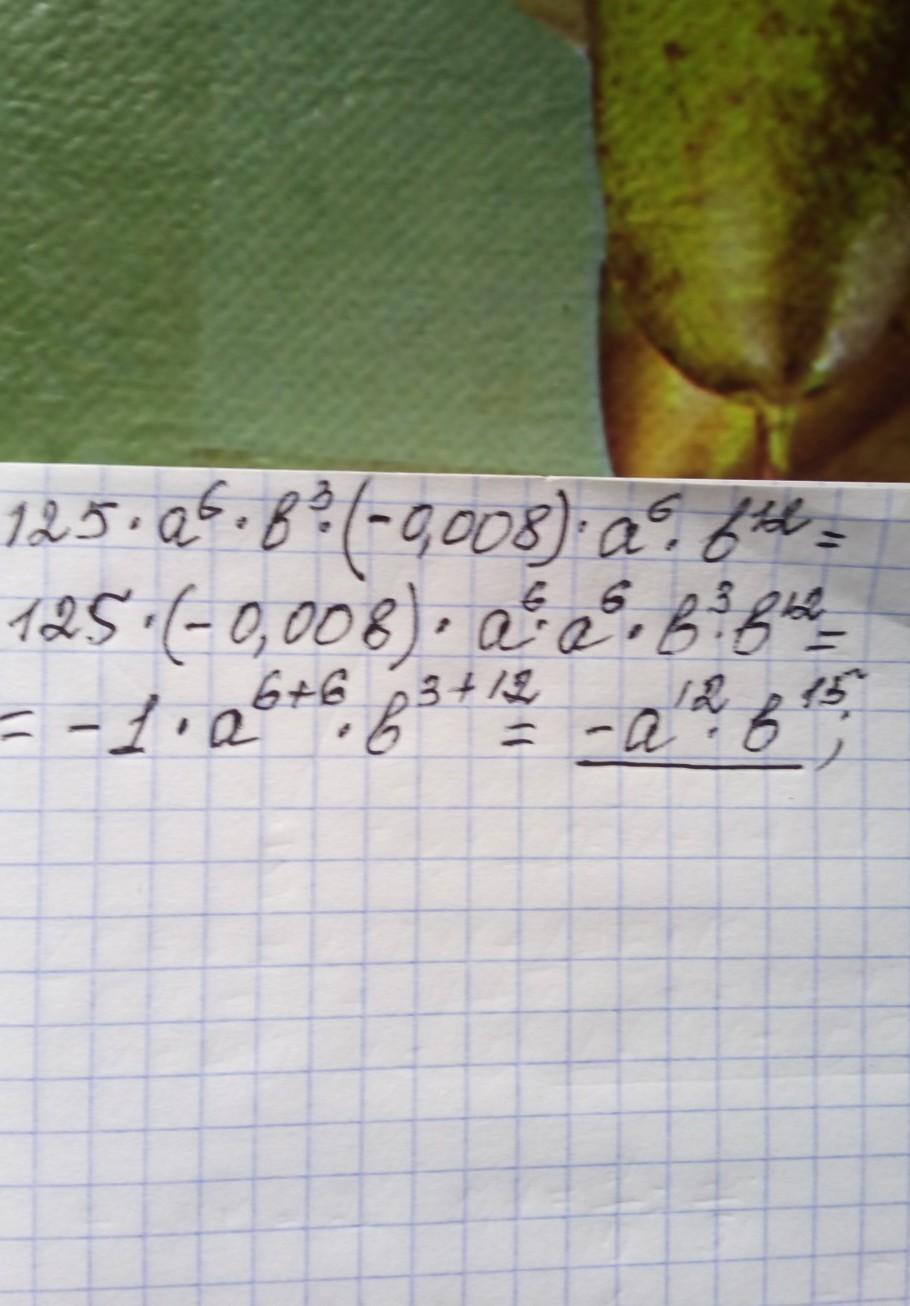 125·a⁶·b³·(-0,008)·a⁶·b¹²=
125·(-0,008)·a⁶·a⁶·b³·b¹²=
=-1·a⁶⁺⁶·b³⁺¹²=-a¹²·b¹⁵;